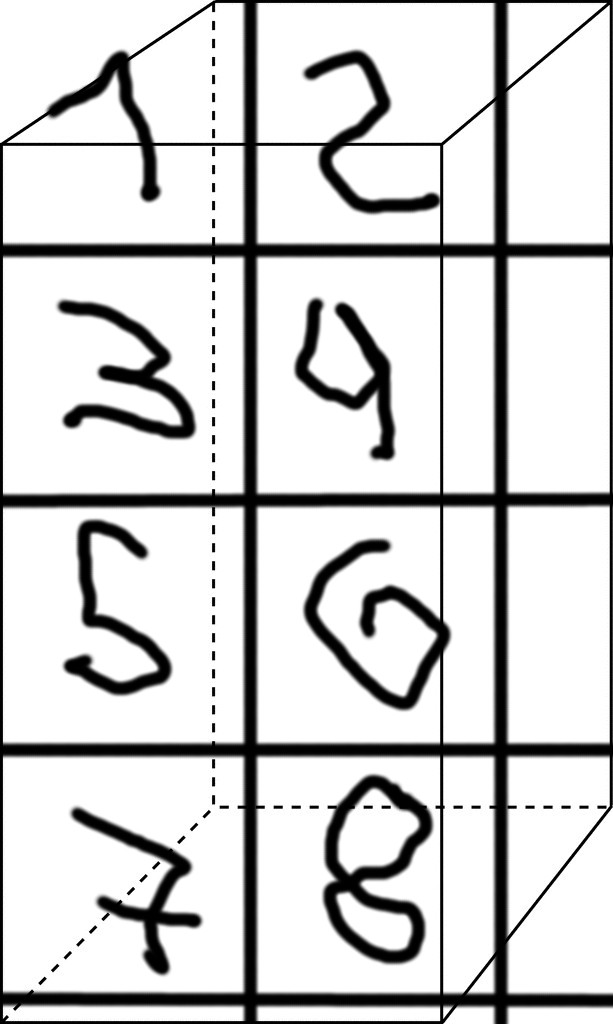 1 2
3 4
5 6
7 8